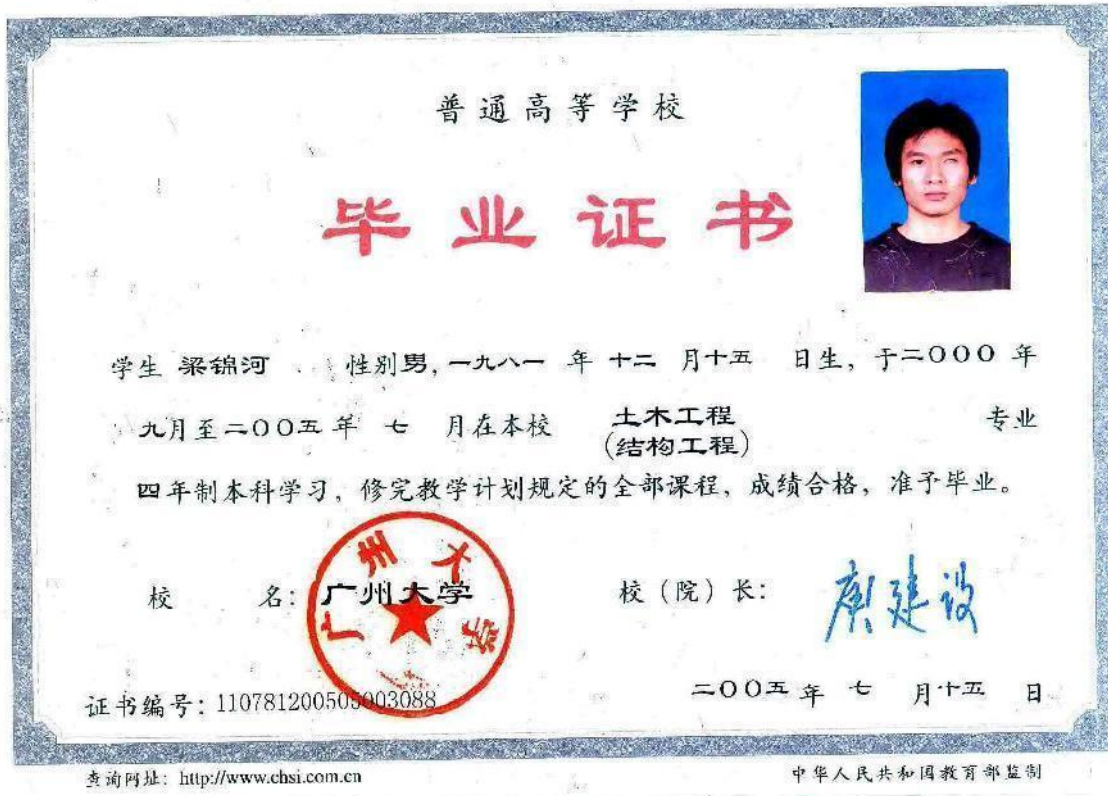 普通高等学校
毕业证书
学生 梁锦河 性别男，一九八一 年 十二 月十五 日生，于二〇〇〇 年
九月至二〇〇五年 七 月在本校 土木工程 专业
(结构工程)
四年制本科学习，修完教学计划规定的全部课程，成绩合格，准予毕业。
校 名：广州大学
校（院）长：庾建设
广州大学
证书编号：110781200505003088
二〇〇五 年 七 月十五 日
查询网址：http://www.chsi.com.cn
中华人民共和国教育部监制